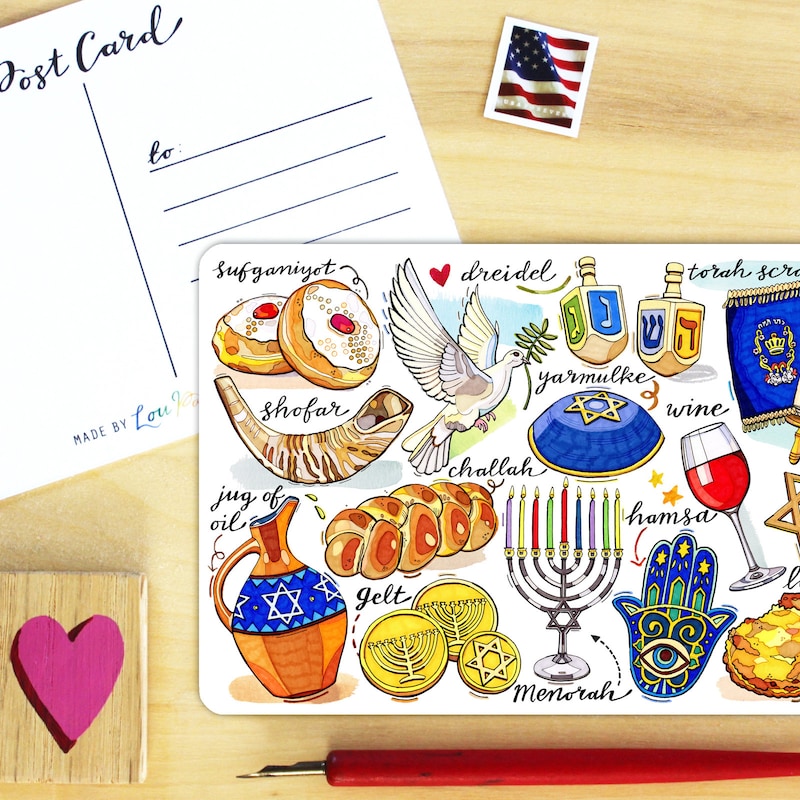 Post Card
to:
MADE BY Lou
sufganiyot
dreidel
torah
shofar
yarmulke
wine
challah
jug of
oil
hamsa
gelt
Menorah
נ
ש
ה